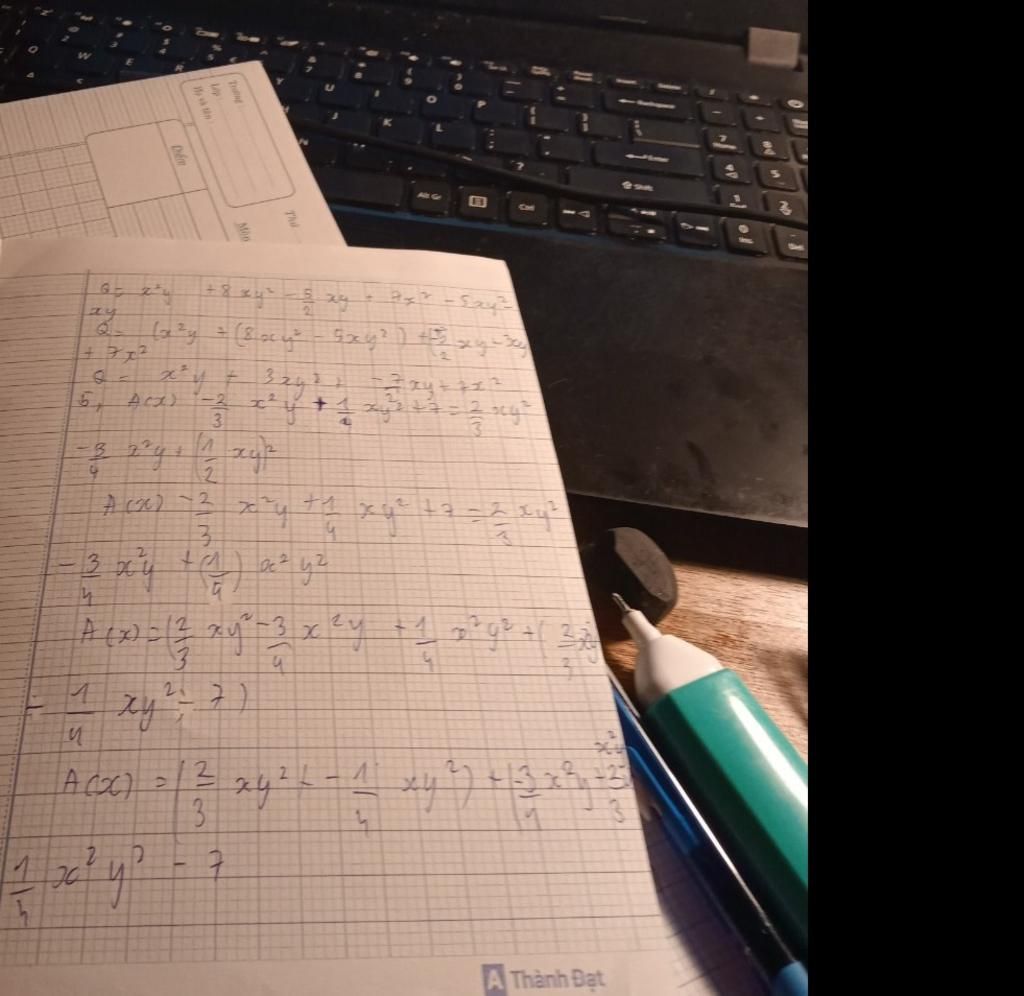 Trường
Lớp
Họ và tên
Điểm
Thứ
Môn
Q= x²y +8xy² - 5/2 xy + 7x² - 5xy² -
xy
Q= (x²y + (8xy² - 5xy²) + (-5/2 xy - xy
+ 7x²
Q= x²y + 3xy² + -7/2 xy + 7x²
5, A(x) -2/3 x²y + 1/4 xy² + 7 = 2/3 xy²
-3/4 x²y + (1/2 xy)²
A(x) -2/3 x²y + 1/4 xy² + 7 = 2/3 xy²
- 3/4 x²y + (1/4) x²y²
A(x) = (2/3 xy² - 3/4 x²y + 1/4 x²y² + (2/3 x²y
- 1/4 xy² - 7)
A(x) = (2/3 xy² + - 1/4 xy²) + (-3/4 x²y + 2/3 x²y
1/4 x²y² - 7
A Thành Đạt
Q
W
E
R
Y
U
I
O
P
J
K
L
Backspace
Enter
Shift
Alt Gr
Ctrl